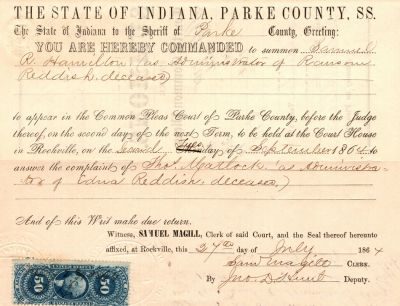 THE STATE OF INDIANA, PARKE COUNTY, SS.
The State of Indiana to the Sheriff of Parke County, Greeting:
YOU ARE HEREBY COMMANDED to summon Samuel
R. Hamilton (as Administrator of Ransom
Reddish, deceased)
to appear in the Common Pleas Court of Parke County, before the Judge
thereof, on the second day of the next Term, to be held at the Court House
in Rockville, on the second day of September 1864 to
answer the complaint of Thos Matlock (as Administra-
tor of Edna Reddish, deceased,)
And of this Writ make due return.
Witness, SAMUEL MAGILL, Clerk of said Court, and the Seal thereof hereunto
affixed, at Rockville, this 27th day of July 1864
Sam Magill CLERK.
By Jno. D. Deputy.
50 50